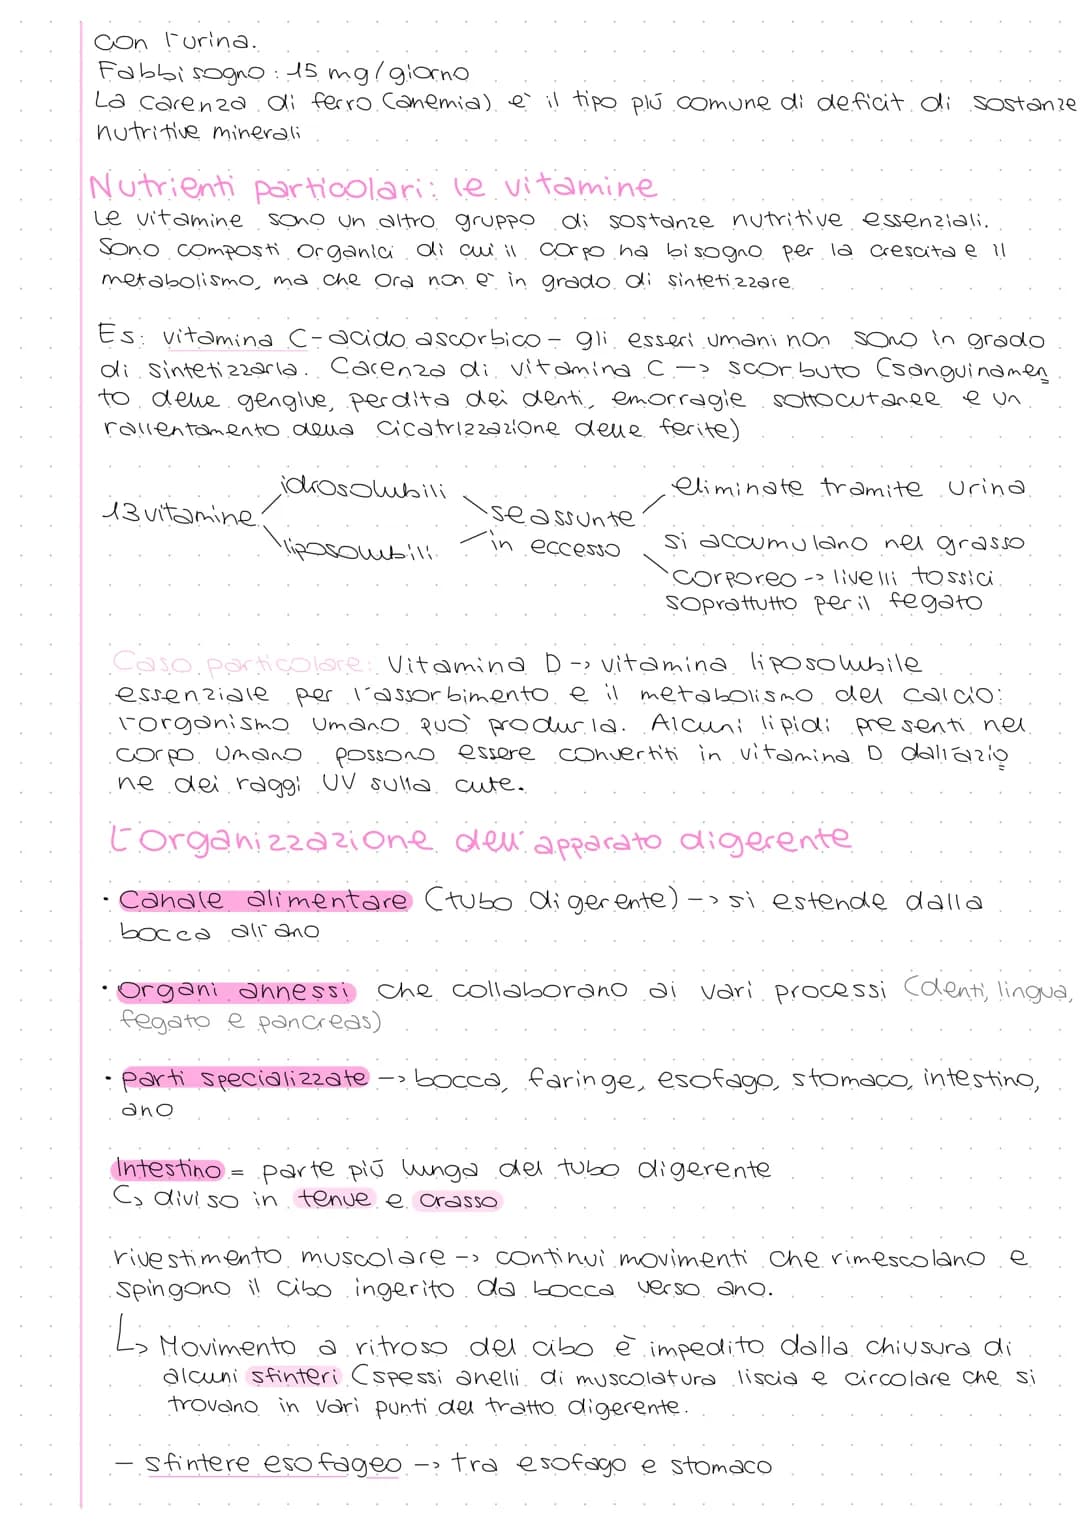 con l'urina.
Fabbisogno: 15 mg/giorno
La carenza di ferro (anemia) è il tipo più comune di deficit di sostanze
nutritive minerali
Nutrienti particolari: le vitamine
Le vitamine sono un altro gruppo di sostanze nutritive essenziali.
Sono composti organici di cui il corpo ha bisogno per la crescita e il
metabolismo, ma che ora non è in grado di sintetizzare
Es: vitamina C-acido ascorbico - gli esseri umani non sono in grado
di sintetizzarla. Carenza di vitamina C -> scorbuto (sanguinamen
to delle gengive, perdita dei denti, emorragie sottocutanee e un
rallentamento della cicatrizzazione delle ferite)
13 vitamine
idrosolubili
liposolubili
se assunte
in eccesso
eliminate tramite urina
si accumulano nel grasso
corporeo -> livelli tossici
soprattutto per il fegato
Caso particolare: Vitamina D -> vitamina liposolubile
essenziale per l'assorbimento e il metabolismo del calcio:
l'organismo umano può produrla. Alcuni lipidi presenti nel
corpo umano possono essere convertiti in vitamina D dall'azio
ne dei raggi UV sulla cute.
L'organizzazione dell'apparato digerente
• Canale alimentare (tubo digerente) -> si estende dalla
bocca all'ano
• Organi annessi che collaborano ai vari processi (denti, lingua,
fegato e pancreas)
• parti specializzate -> bocca, faringe, esofago, stomaco, intestino,
ano
Intestino = parte più lunga del tubo digerente
↳ diviso in tenue e crasso
rivestimento muscolare -> continui movimenti che rimescolano e
spingono il cibo ingerito da bocca verso ano.
↳ Movimento a ritroso del cibo è impedito dalla chiusura di
alcuni sfinteri (spessi anelli di muscolatura liscia e circolare che si
trovano in vari punti del tratto digerente.
- sfintere esofageo -> tra esofago e stomaco